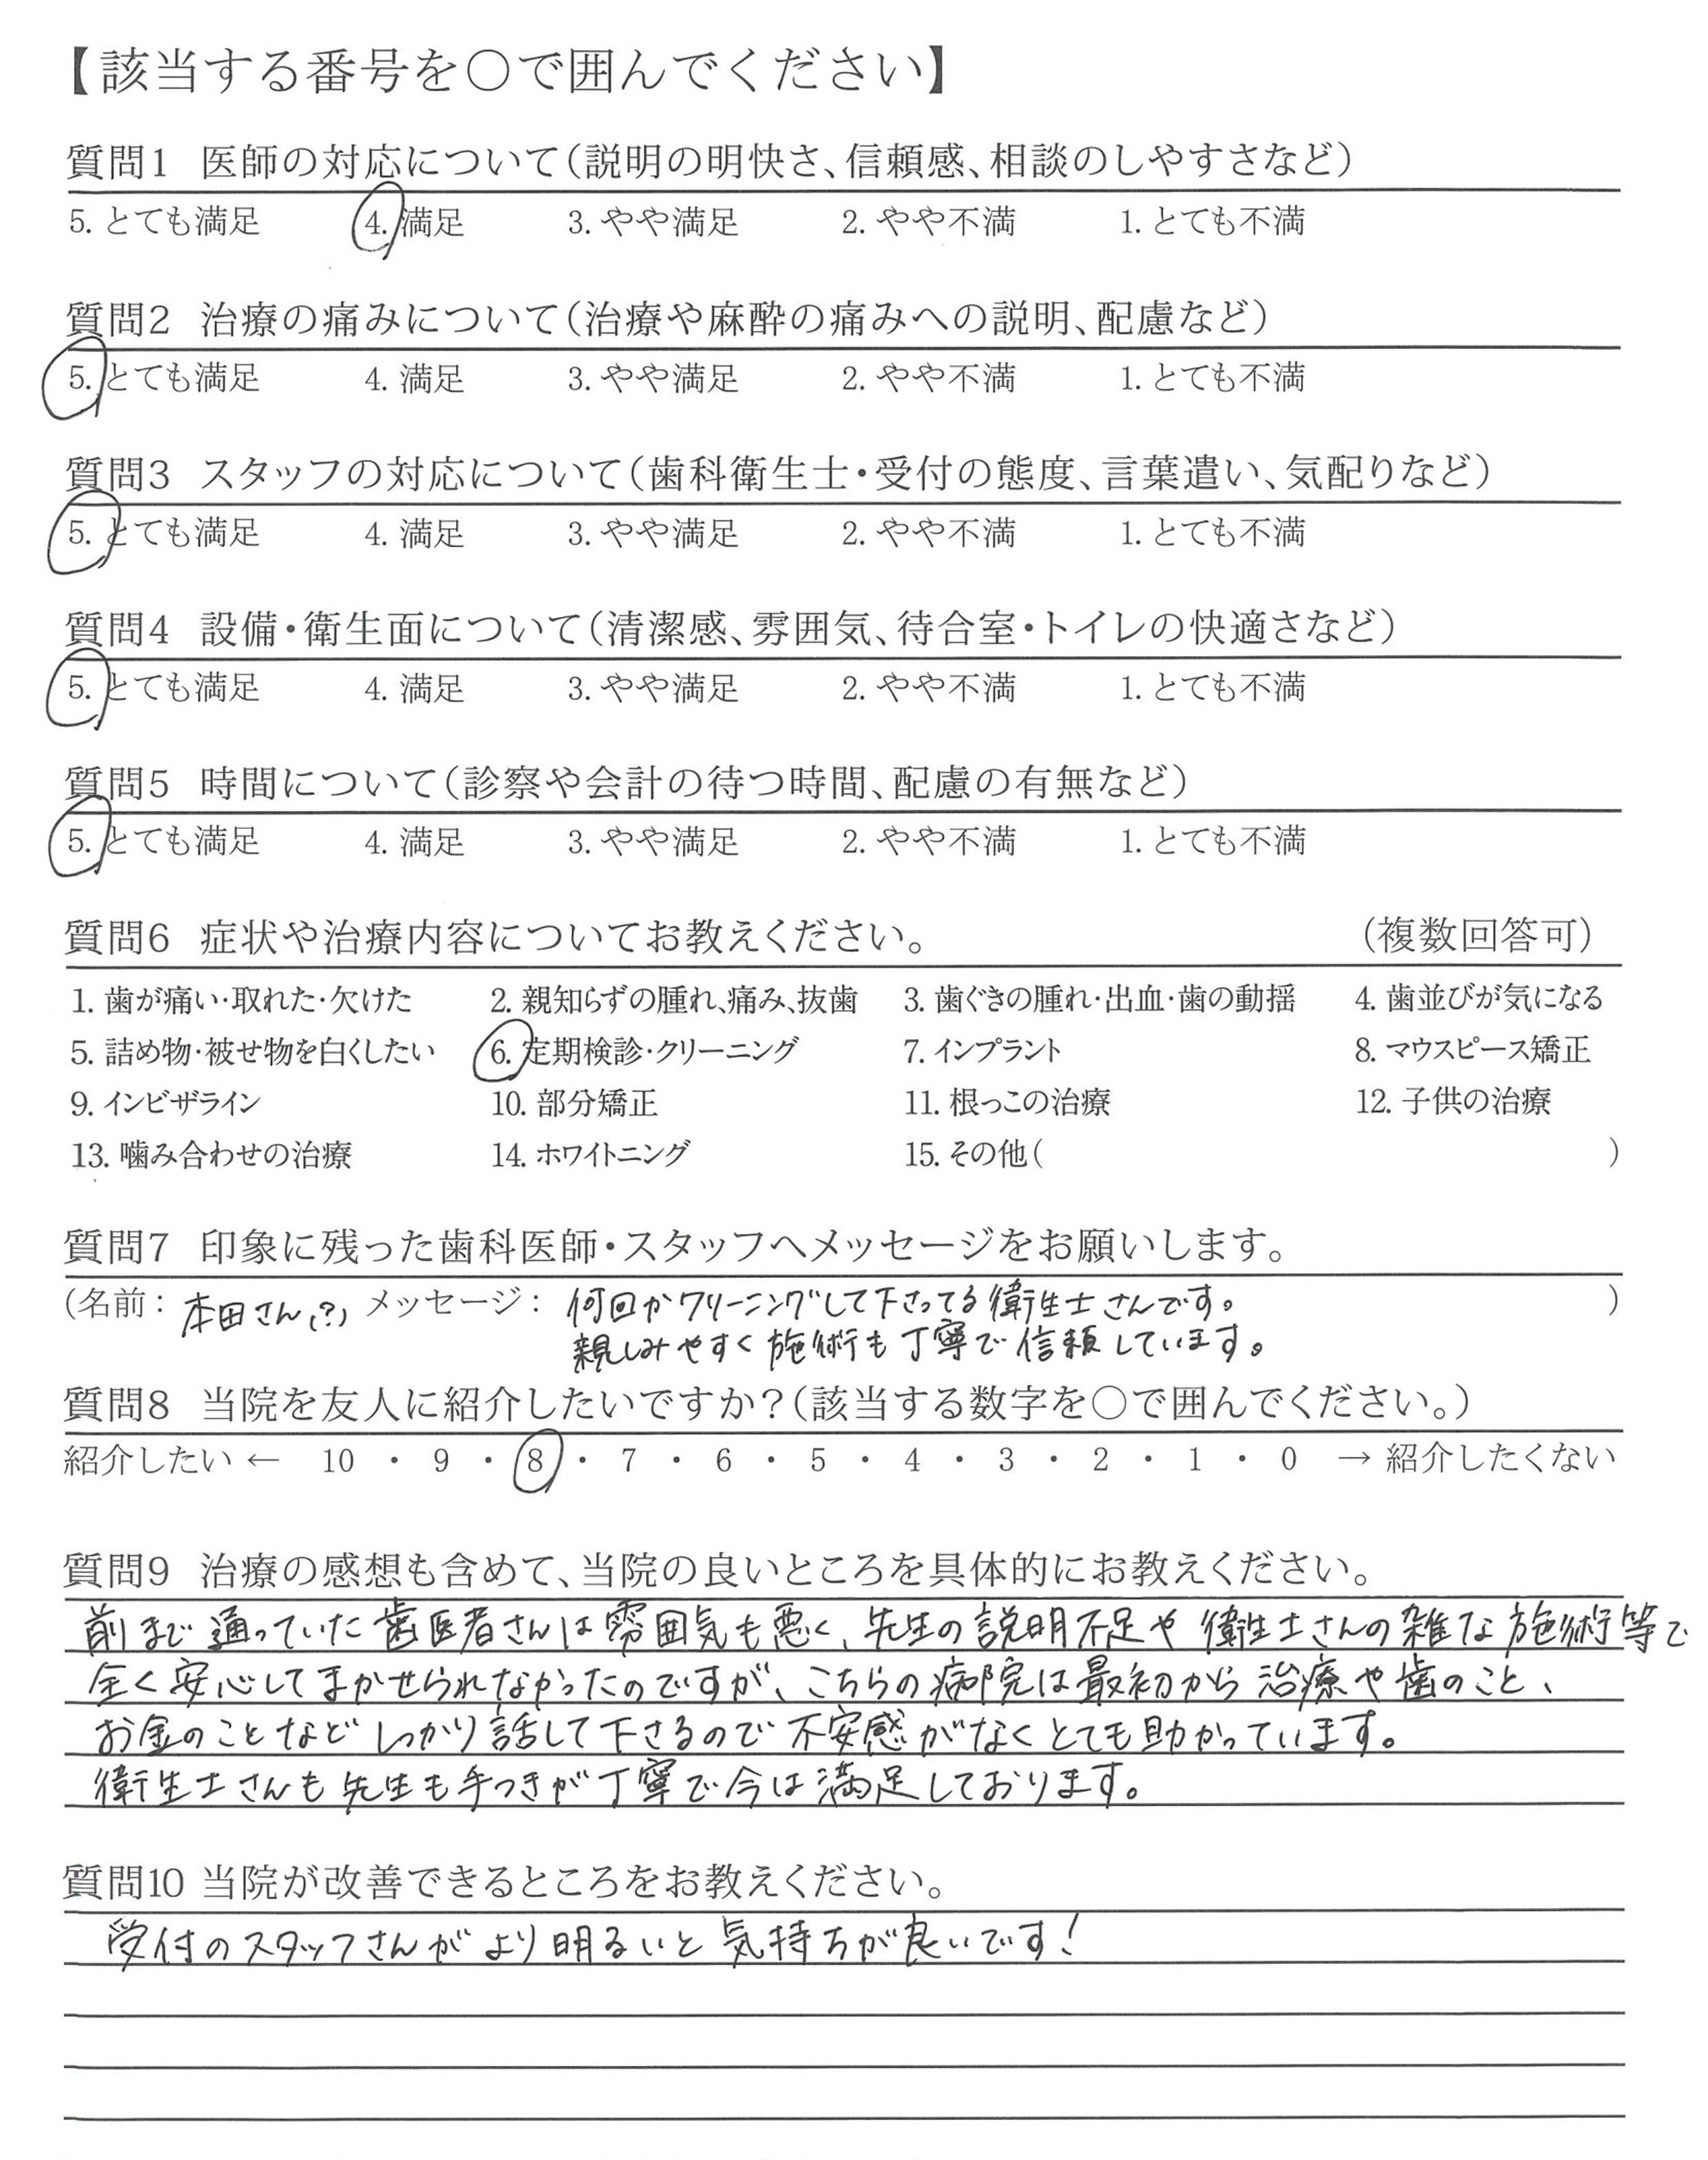 【該当する番号を〇で囲んでください】
質問1 医師の対応について(説明の明快さ、信頼感、相談のしやすさなど)
5. とても満足 4. 満足 3. やや満足 2. やや不満 1. とても不満
質問2 治療の痛みについて(治療や麻酔の痛みへの説明、配慮など)
5. とても満足 4. 満足 3. やや満足 2. やや不満 1. とても不満
質問3 スタッフの対応について(歯科衛生士・受付の態度、言葉遣い、気配りなど)
5. とても満足 4. 満足 3. やや満足 2. やや不満 1. とても不満
質問4 設備・衛生面について(清潔感、雰囲気、待合室・トイレの快適さなど)
5. とても満足 4. 満足 3. やや満足 2. やや不満 1. とても不満
質問5 時間について(診察や会計の待つ時間、配慮の有無など)
5. とても満足 4. 満足 3. やや満足 2. やや不満 1. とても不満
質問6 症状や治療内容についてお教えください。 (複数回答可)
1. 歯が痛い・取れた・欠けた 2. 親知らずの腫れ、痛み、抜歯 3. 歯ぐきの腫れ・出血・歯の動揺 4. 歯並びが気になる
5. 詰め物・被せ物を白くしたい 6. 定期検診・クリーニング 7. インプラント 8. マウスピース矯正
9. インビザライン 10. 部分矯正 11. 根っこの治療 12. 子供の治療
13. 噛み合わせの治療 14. ホワイトニング 15. その他( )
質問7 印象に残った歯科医師・スタッフへメッセージをお願いします。
(名前: 本田さん(?) メッセージ: 何回かクリーニングして下さってる衛生士さんです。 )
親しみやすく施術も丁寧で信頼しています。
質問8 当院を友人に紹介したいですか?(該当する数字を〇で囲んでください。)
紹介したい ← 10 ・ 9 ・ 8 ・ 7 ・ 6 ・ 5 ・ 4 ・ 3 ・ 2 ・ 1 ・ 0 → 紹介したくない
質問9 治療の感想も含めて、当院の良いところを具体的にお教えください。
前まで通っていた歯医者さんは雰囲気も悪く、先生の説明不足や衛生士さんの雑な施術等で
全く安心してまかせられなかったのですが、こちらの病院は最初から治療や歯のこと、
お金のことなどしっかり話して下さるので不安感がなくとても助かっています。
衛生士さんも先生も手つきが丁寧で今は満足しております。
質問10 当院が改善できるところをお教えください。
受付のスタッフさんがより明るいと気持ちが良いです!